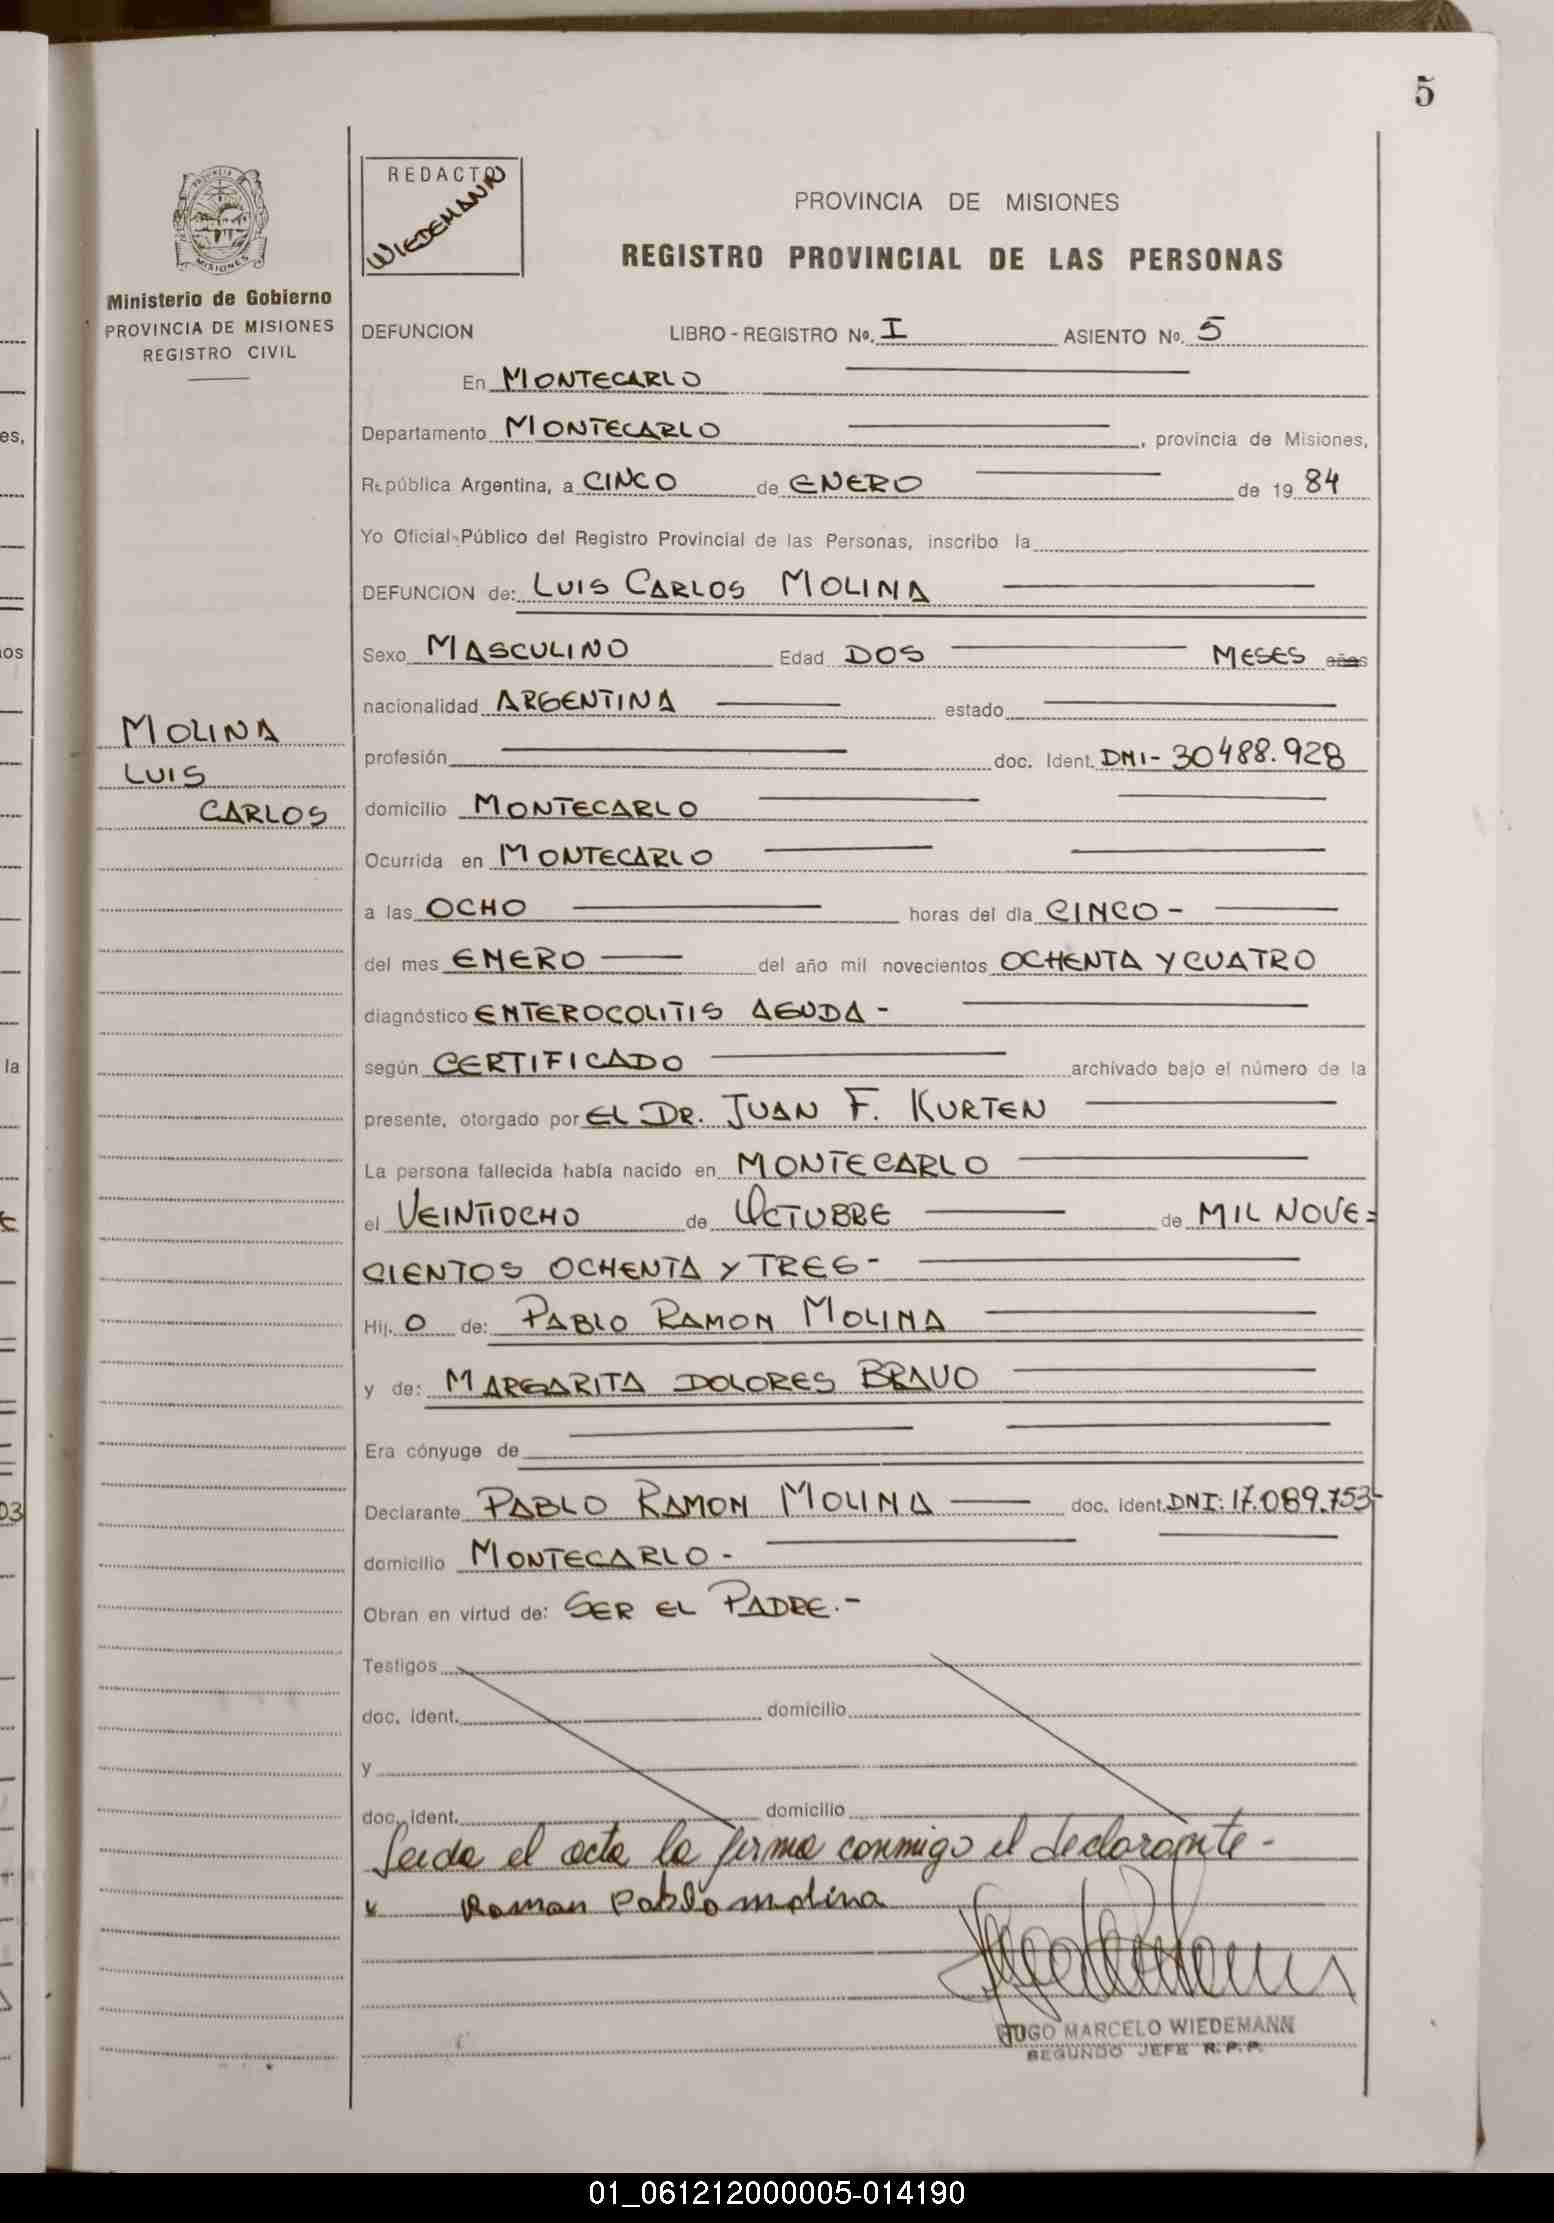 5
PROVINCIA
MISIONES
Ministerio de Gobierno
PROVINCIA DE MISIONES
REGISTRO CIVIL
REDACTO
WIEDEMANN
PROVINCIA DE MISIONES
REGISTRO PROVINCIAL DE LAS PERSONAS
DEFUNCION LIBRO - REGISTRO No. I ASIENTO No. 5
En MONTECARLO
Departamento MONTECARLO, provincia de Misiones,
República Argentina, a CINCO de ENERO de 19 84
Yo Oficial Público del Registro Provincial de las Personas, inscribo la
DEFUNCION de: LUIS CARLOS MOLINA
Sexo MASCULINO Edad DOS MESES años
nacionalidad ARGENTINA estado
MOLINA
LUIS
CARLOS
profesión doc. Ident. DNI - 30488.928
domicilio MONTECARLO
Ocurrida en MONTECARLO
a las OCHO horas del día CINCO -
del mes ENERO del año mil novecientos OCHENTA Y CUATRO
diagnóstico ENTEROCOLITIS AGUDA -
según CERTIFICADO archivado bajo el número de la
presente, otorgado por EL DR. JUAN F. KURTEN
La persona fallecida había nacido en MONTECARLO
el VEINTIOCHO de OCTUBRE de MIL NOVE=
CIENTOS OCHENTA Y TRES -
Hij. O de: PABLO RAMON MOLINA
y de: MARGARITA DOLORES BRAVO
Era cónyuge de
Declarante PABLO RAMON MOLINA doc. ident. DNI: 17.089.753-
domicilio MONTECARLO -
Obran en virtud de: SER EL PADRE.-
Testigos
doc. ident. domicilio
y
doc. ident. domicilio
Leida el acta la firma conmigo el declarante -
x Roman Pablo molina
HUGO MARCELO WIEDEMANN
SEGUNDO JEFE R.P.P.
es,
os
la
03
01_061212000005-014190